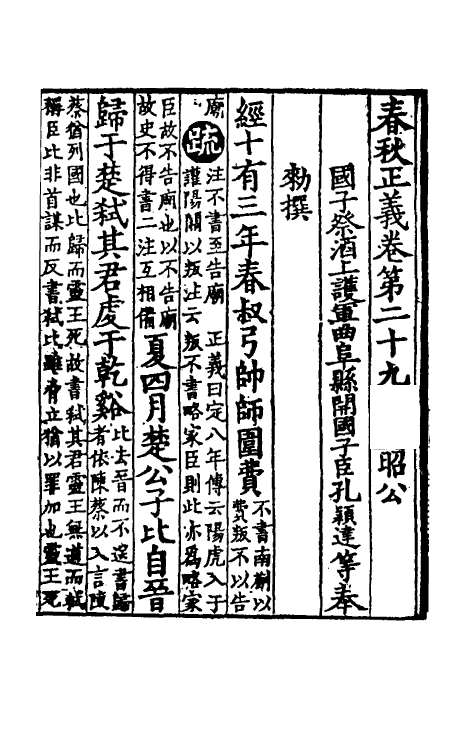 春秋正義卷第二十九　昭公
國子祭酒上護軍曲阜縣開國子臣孔穎達等奉
勑撰
經十有三年春叔弓帥師圍費 不書南蒯以
費叛不以告
廟 疏 注不書至告廟　正義曰定八年傳云陽虎入于
讙陽關以叛注云叛不書略家臣則此亦爲略家
臣故不告廟也以不告廟
故史不得書二注互相備 夏四月楚公子比自晉
歸于楚弑其君虔于乾谿 比去晉而不送書歸
者依陳蔡以入言陳
蔡猶列國也比歸而靈王死故書弑其君靈王無道而弑
稱臣比非首謀而反書弑比雖脅立猶以罪加也靈王死